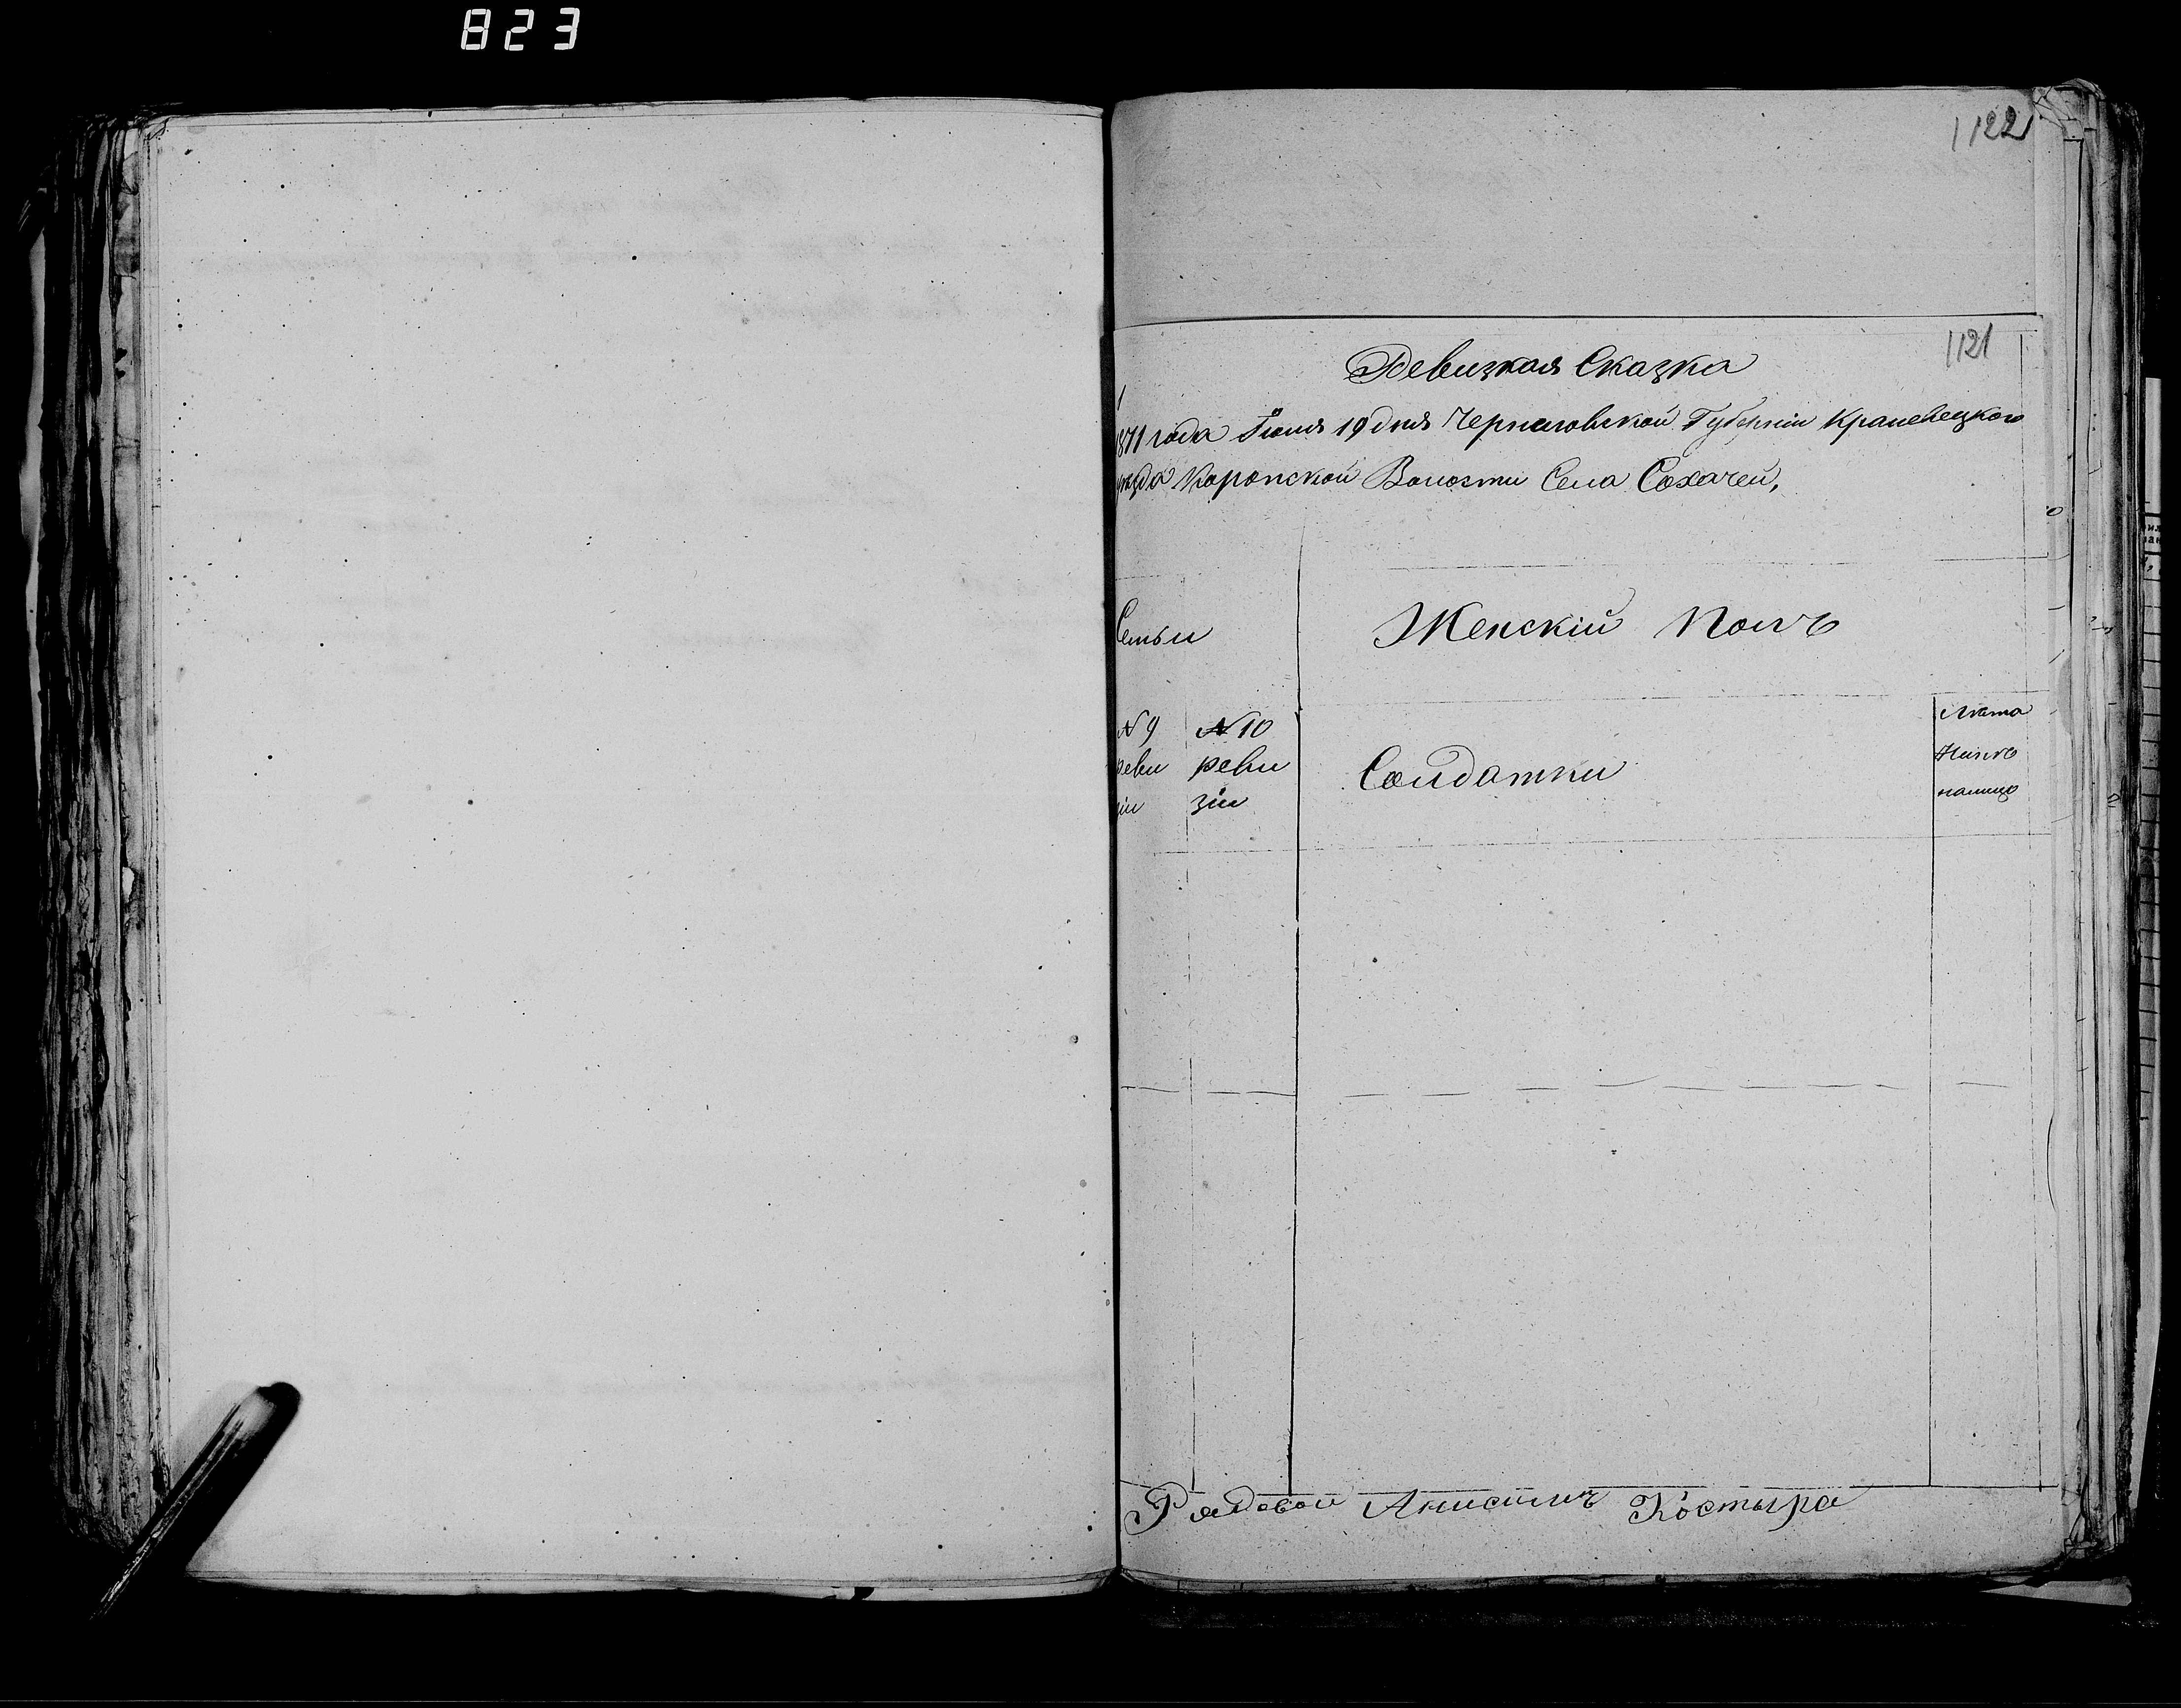 823
1122
1121
Ревизкая Сказка
1871 года Іюня 19 дня Черниговской Губерніи Кралевецкого
уезда Коропской Волости Села Сохачей,
Семьи
Женскій Полъ
№ 9 реви зіи
№ 10 реви зіи
Солдатки
Лѣта
Нинѣ
налицо
Рядовой Анисимъ Костыра